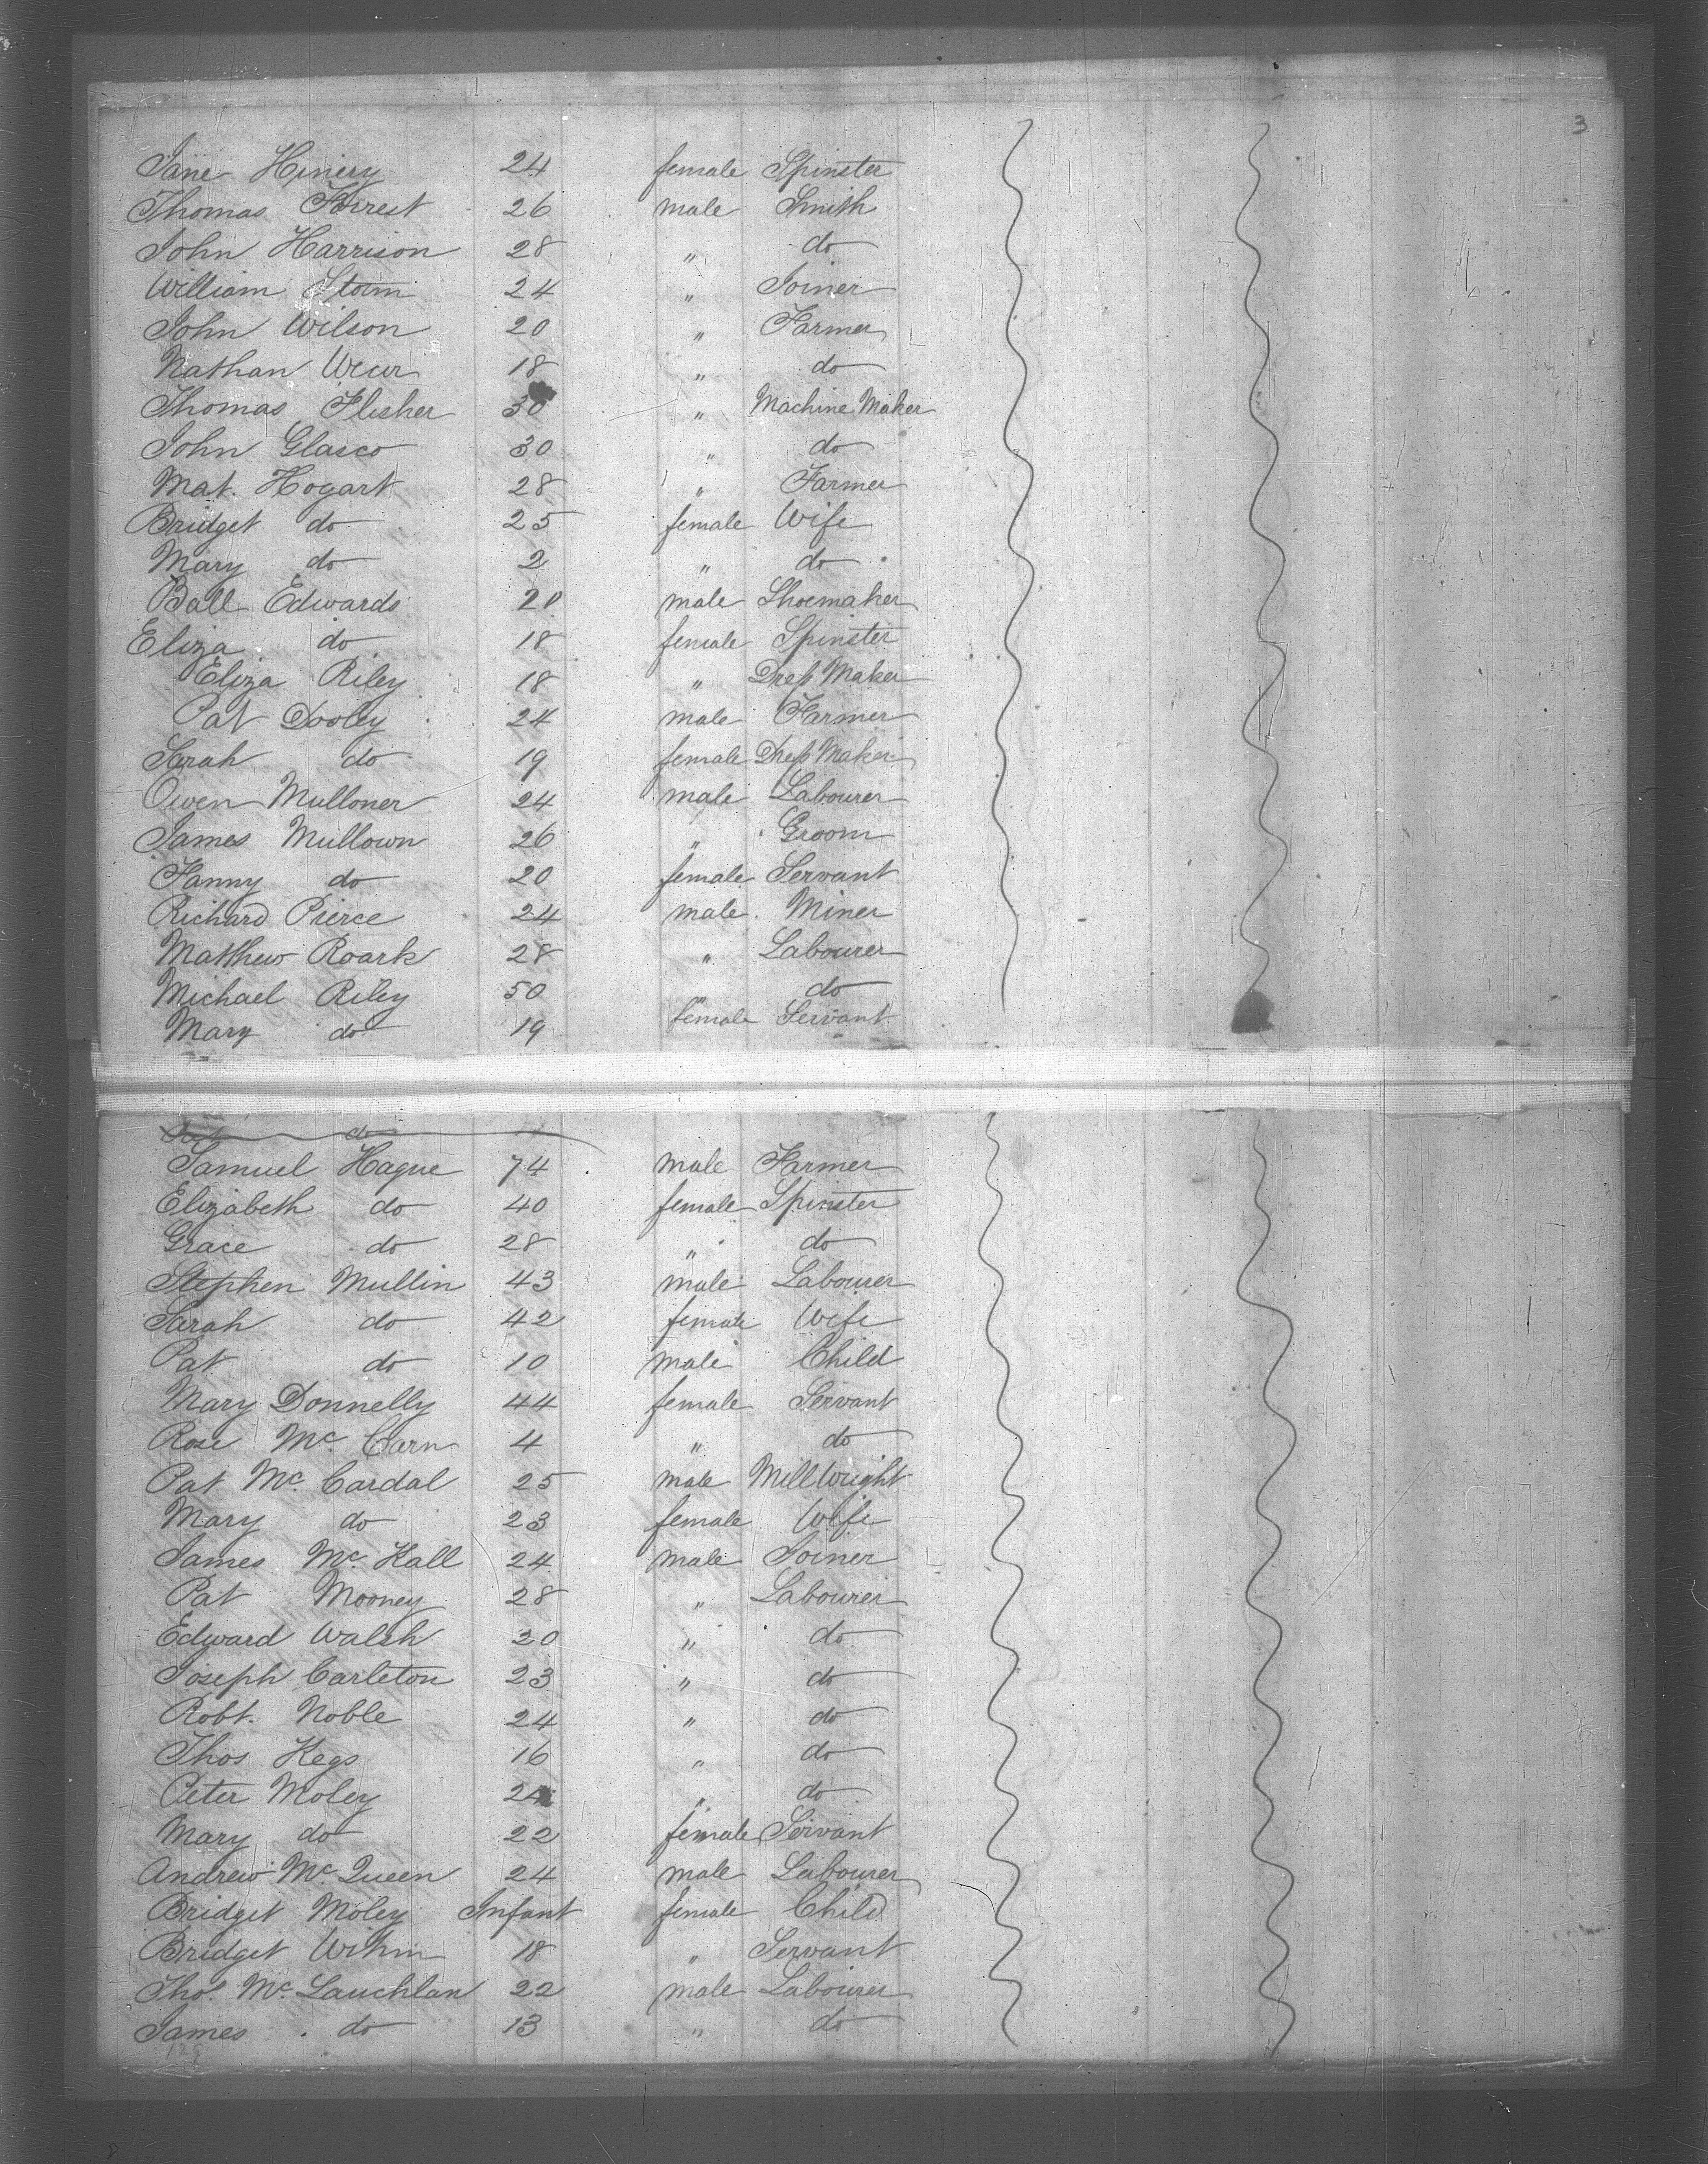 3
Jane Hniery 24 female Spinster
Thomas Forrest 26 male Smith
John Harrison 28 " do
William Storm 24 " Joiner
John Wilson 20 " Farmer
Nathan Weur 18 " do
Thomas Flesher 30 " Machine Maker
John Glasco 30 " do
Mat. Hogart 28 " Farmer
Bridget do 25 female Wife
Mary do 2 " do
Ball Edwards male Shoemaker
Eliza do 18 female Spinster
Eliza Riley 18 " Dress Maker
Pat Dooley 24 male Farmer
Sarah do 19 female Dress Maker
Owen Mulloner 24 male Labourer
James Mullown 26 " Groom
Fanny do 20 female Servant
Richard Pierce 24 male Miner
Matthew Roark 28 " Labourer
Michael Riley 50 " do
Mary do 19 female Servant
do
Samuel Hague 74 male Farmer
Elizabeth do 40 female Spinster
Grace do 28 " do
Stephen Mullin 43 male Labourer
Sarah do 42 female Wife
Pat do 10 male Child
Mary Donnelly 44 female Servant
Rose Mc. Carn 4 " do
Pat Mc. Cardal 25 male MillWright
Mary do 23 female Wife
James Mc. Kall 24 male Joiner
Pat Mooney 28 " Labourer
Edward Walsh 20 " do
Joseph Carleton 23 " do
Robt. Noble 24 " do
Thos Kegs 16 " do
Peter Moley 24 " do
Mary do 22 female Servant
Andrew Mc. Queen 24 male Labourer
Bridget Moley Infant female Child
Bridget 18 " Servant
Thos. Mc. Lauchlan 22 male Labourer
James do 13 " do